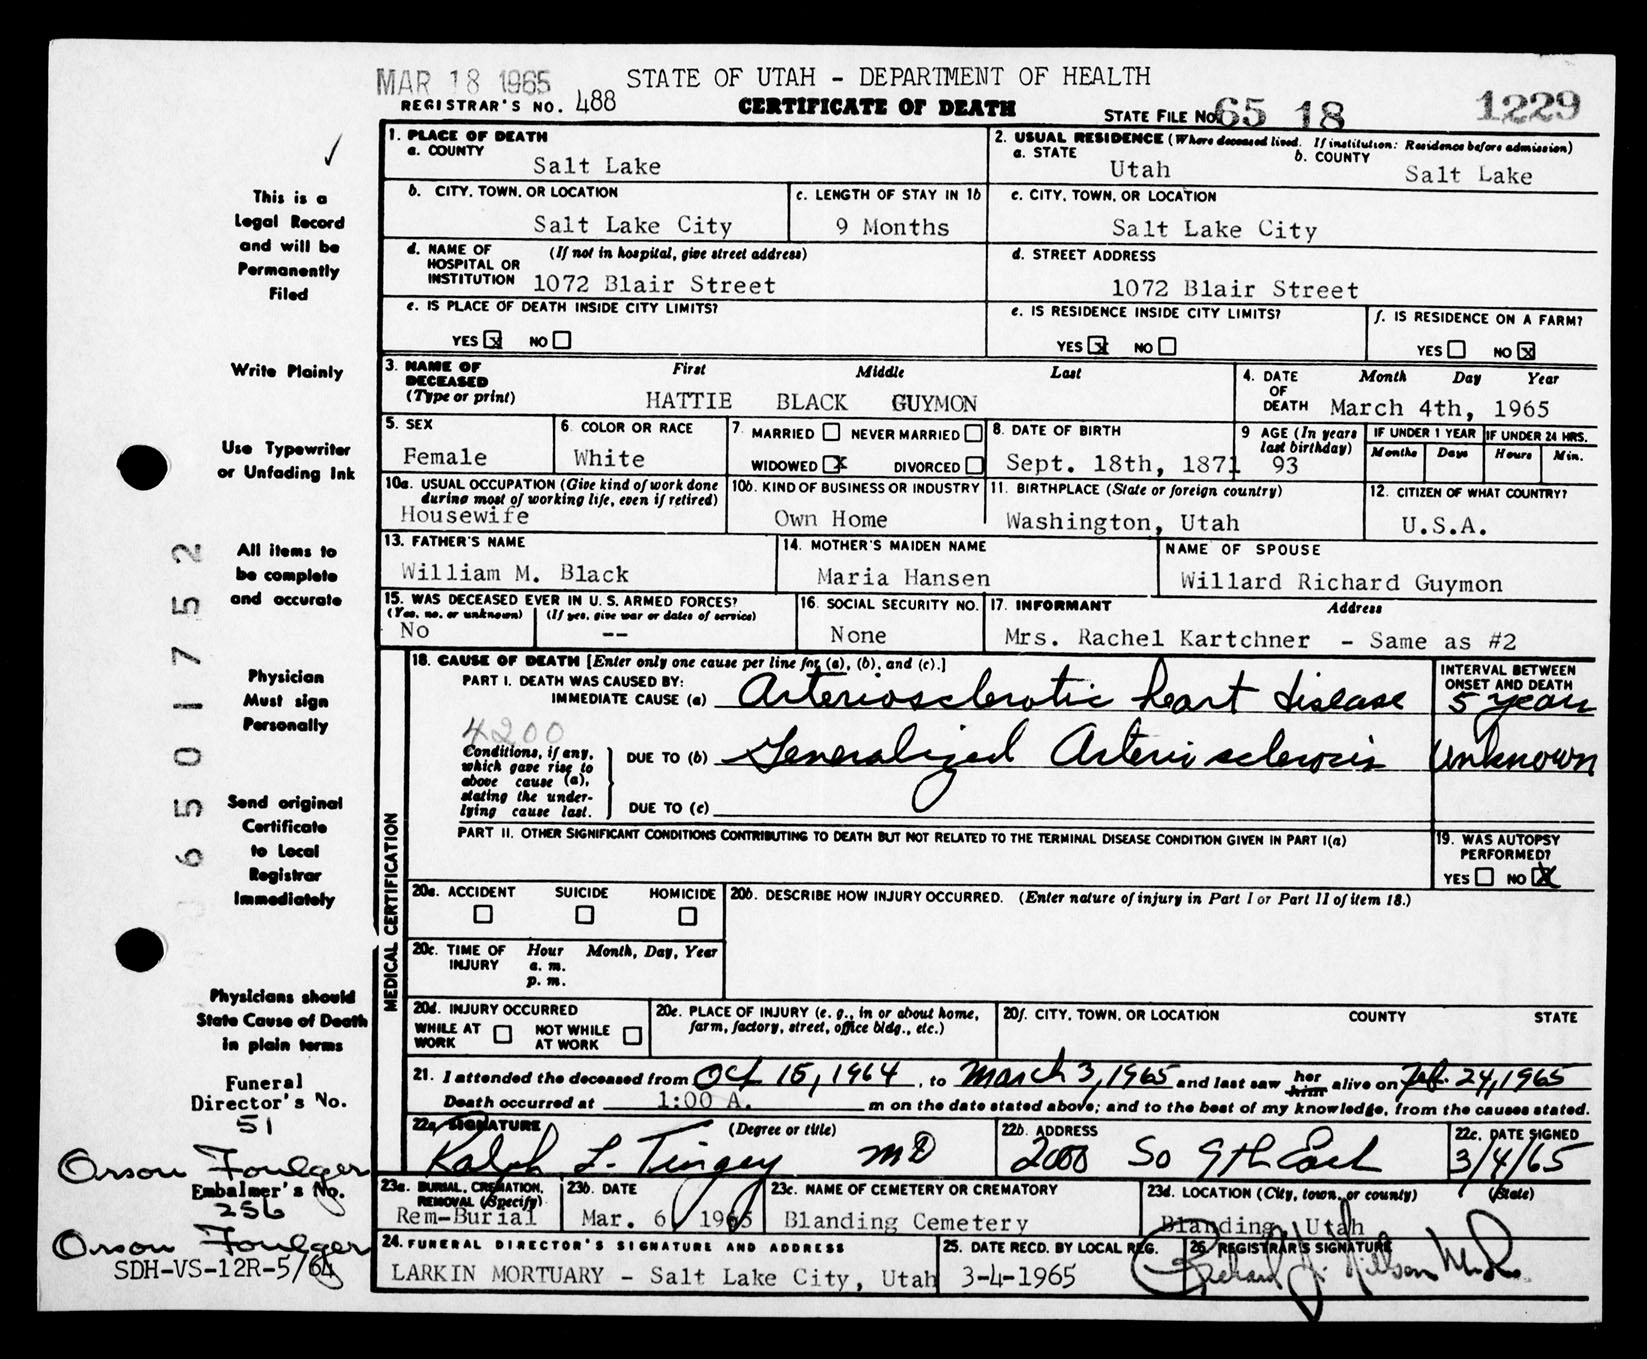 MAR 18 1965 STATE OF UTAH - DEPARTMENT OF HEALTH
REGISTRAR'S NO. 488 CERTIFICATE OF DEATH STATE FILE No. 65 18 1229
1. PLACE OF DEATH
a. COUNTY
Salt Lake
2. USUAL RESIDENCE (Where deceased lived. If institution: Residence before admission)
a. STATE b. COUNTY
Utah Salt Lake
b. CITY, TOWN, OR LOCATION
Salt Lake City
c. LENGTH OF STAY IN 1b
9 Months
c. CITY, TOWN, OR LOCATION
Salt Lake City
d. NAME OF HOSPITAL OR INSTITUTION (If not in hospital, give street address)
1072 Blair Street
d. STREET ADDRESS
1072 Blair Street
e. IS PLACE OF DEATH INSIDE CITY LIMITS?
YES X NO
e. IS RESIDENCE INSIDE CITY LIMITS?
YES X NO
f. IS RESIDENCE ON A FARM?
YES NO X
3. NAME OF DECEASED (Type or print) First Middle Last
HATTIE BLACK GUYMON
4. DATE OF DEATH Month Day Year
March 4th, 1965
5. SEX
Female
6. COLOR OR RACE
White
7. MARRIED NEVER MARRIED
WIDOWED X DIVORCED
8. DATE OF BIRTH
Sept. 18th, 1871
9 AGE (In years last birthday)
93
IF UNDER 1 YEAR IF UNDER 24 HRS.
Months Days Hours Min.
10a. USUAL OCCUPATION (Give kind of work done during most of working life, even if retired)
Housewife
10b. KIND OF BUSINESS OR INDUSTRY
Own Home
11. BIRTHPLACE (State or foreign country)
Washington, Utah
12. CITIZEN OF WHAT COUNTRY?
U.S.A.
13. FATHER'S NAME
William M. Black
14. MOTHER'S MAIDEN NAME
Maria Hansen
NAME OF SPOUSE
Willard Richard Guymon
15. WAS DECEASED EVER IN U. S. ARMED FORCES?
(Yes, no, or unknown) (If yes, give war or dates of service)
No --
16. SOCIAL SECURITY NO.
None
17. INFORMANT Address
Mrs. Rachel Kartchner - Same as #2
MEDICAL CERTIFICATION
18. CAUSE OF DEATH [Enter only one cause per line for (a), (b), and (c).]
PART I. DEATH WAS CAUSED BY:
IMMEDIATE CAUSE (a) Arteriosclerotic heart disease
INTERVAL BETWEEN ONSET AND DEATH
5 years
4200
Conditions, if any, which gave rise to above cause (a), stating the underlying cause last.
DUE TO (b) Generalized Arteriosclerosis Unknown
DUE TO (c)
PART II. OTHER SIGNIFICANT CONDITIONS CONTRIBUTING TO DEATH BUT NOT RELATED TO THE TERMINAL DISEASE CONDITION GIVEN IN PART I(a)
19. WAS AUTOPSY PERFORMED?
YES NO X
20a. ACCIDENT SUICIDE HOMICIDE
20b. DESCRIBE HOW INJURY OCCURRED. (Enter nature of injury in Part I or Part II of item 18.)
20c. TIME OF INJURY Hour Month, Day, Year
a. m.
p. m.
20d. INJURY OCCURRED
WHILE AT WORK NOT WHILE AT WORK
20e. PLACE OF INJURY (e. g., in or about home, farm, factory, street, office bldg., etc.)
20f. CITY, TOWN, OR LOCATION COUNTY STATE
21. I attended the deceased from Oct 15, 1964, to March 3, 1965 and last saw her him alive on Feb. 24, 1965
Death occurred at 1:00 A. m on the date stated above; and to the best of my knowledge, from the causes stated.
22a. SIGNATURE (Degree or title)
Ralph L. Tingey MD
22b. ADDRESS
2000 So 9th East
22c. DATE SIGNED
3/4/65
23a. BURIAL, CREMATION, REMOVAL (Specify)
Rem-Burial
23b. DATE
Mar. 6, 1965
23c. NAME OF CEMETERY OR CREMATORY
Blanding Cemetery
23d. LOCATION (City, town, or county) (State)
Blanding, Utah
24. FUNERAL DIRECTOR'S SIGNATURE AND ADDRESS
LARKIN MORTUARY - Salt Lake City, Utah
25. DATE RECD. BY LOCAL REG.
3-4-1965
26. REGISTRAR'S SIGNATURE
This is a
Legal Record
and will be
Permanently
Filed
Write Plainly
Use Typewriter
or Unfading Ink
All items to
be complete
and accurate
Physician
Must sign
Personally
Send original
Certificate
to Local
Registrar
Immediately
Physicians should
State Cause of Death
in plain terms
Funeral
Director's No.
51
Orson Foulger
Embalmer's No.
256
Orson Foulger
SDH-VS-12R-5/64
65017752